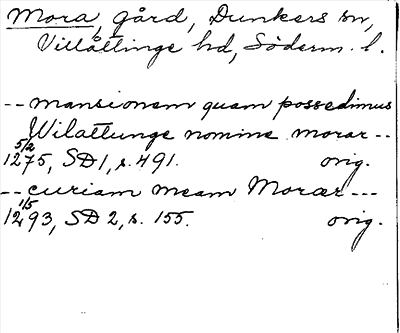 Mora, gård, Dunkers sn,
Villåttinge hd, Söderm. l.
-- mansionem quam possedimus
Wilattunge nomine morar --
5/2
1275, SD 1, s. 491. orig.
-- curiam meam Moraar ---
1/5
1293, SD 2, s. 155. orig.